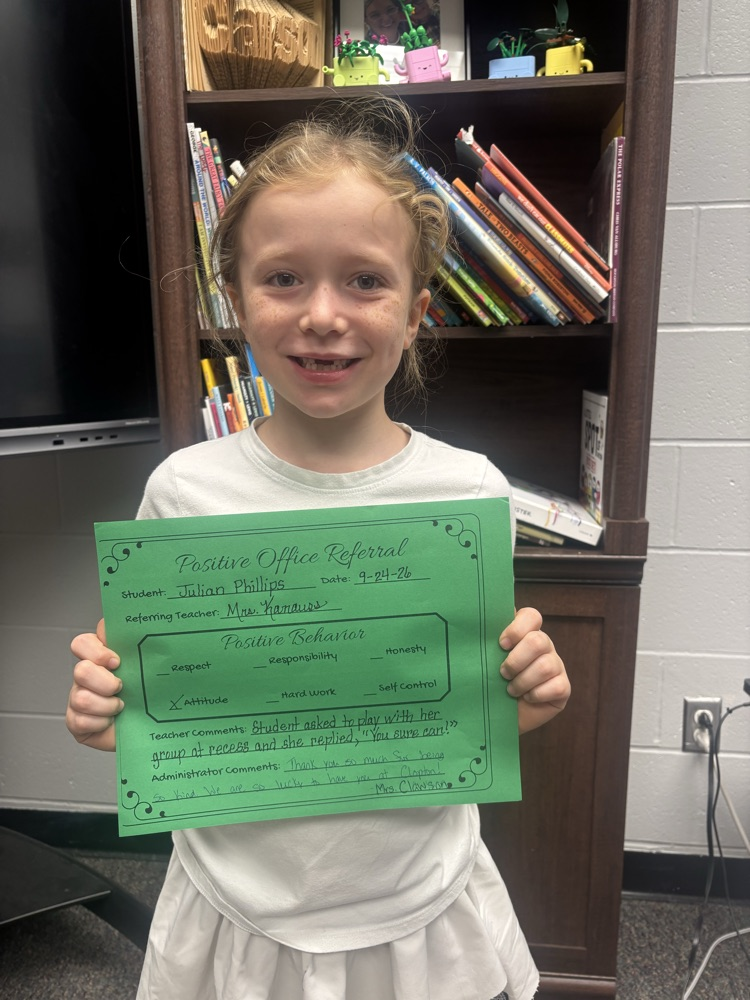 THE POLAR EXPRESS
Positive Office Referral
Student: Julian Phillips Date: 9-24-26
Referring Teacher: Mrs. Kanauss
Positive Behavior
_ Respect _ Responsibility _ Honesty
X Attitude _ Hard Work _ Self Control
Teacher Comments: Student asked to play with her
group at recess and she replied, "You sure can!"
Administrator Comments: Thank you so much for being
so kind. We are so lucky to have you at
Mrs. Clawson